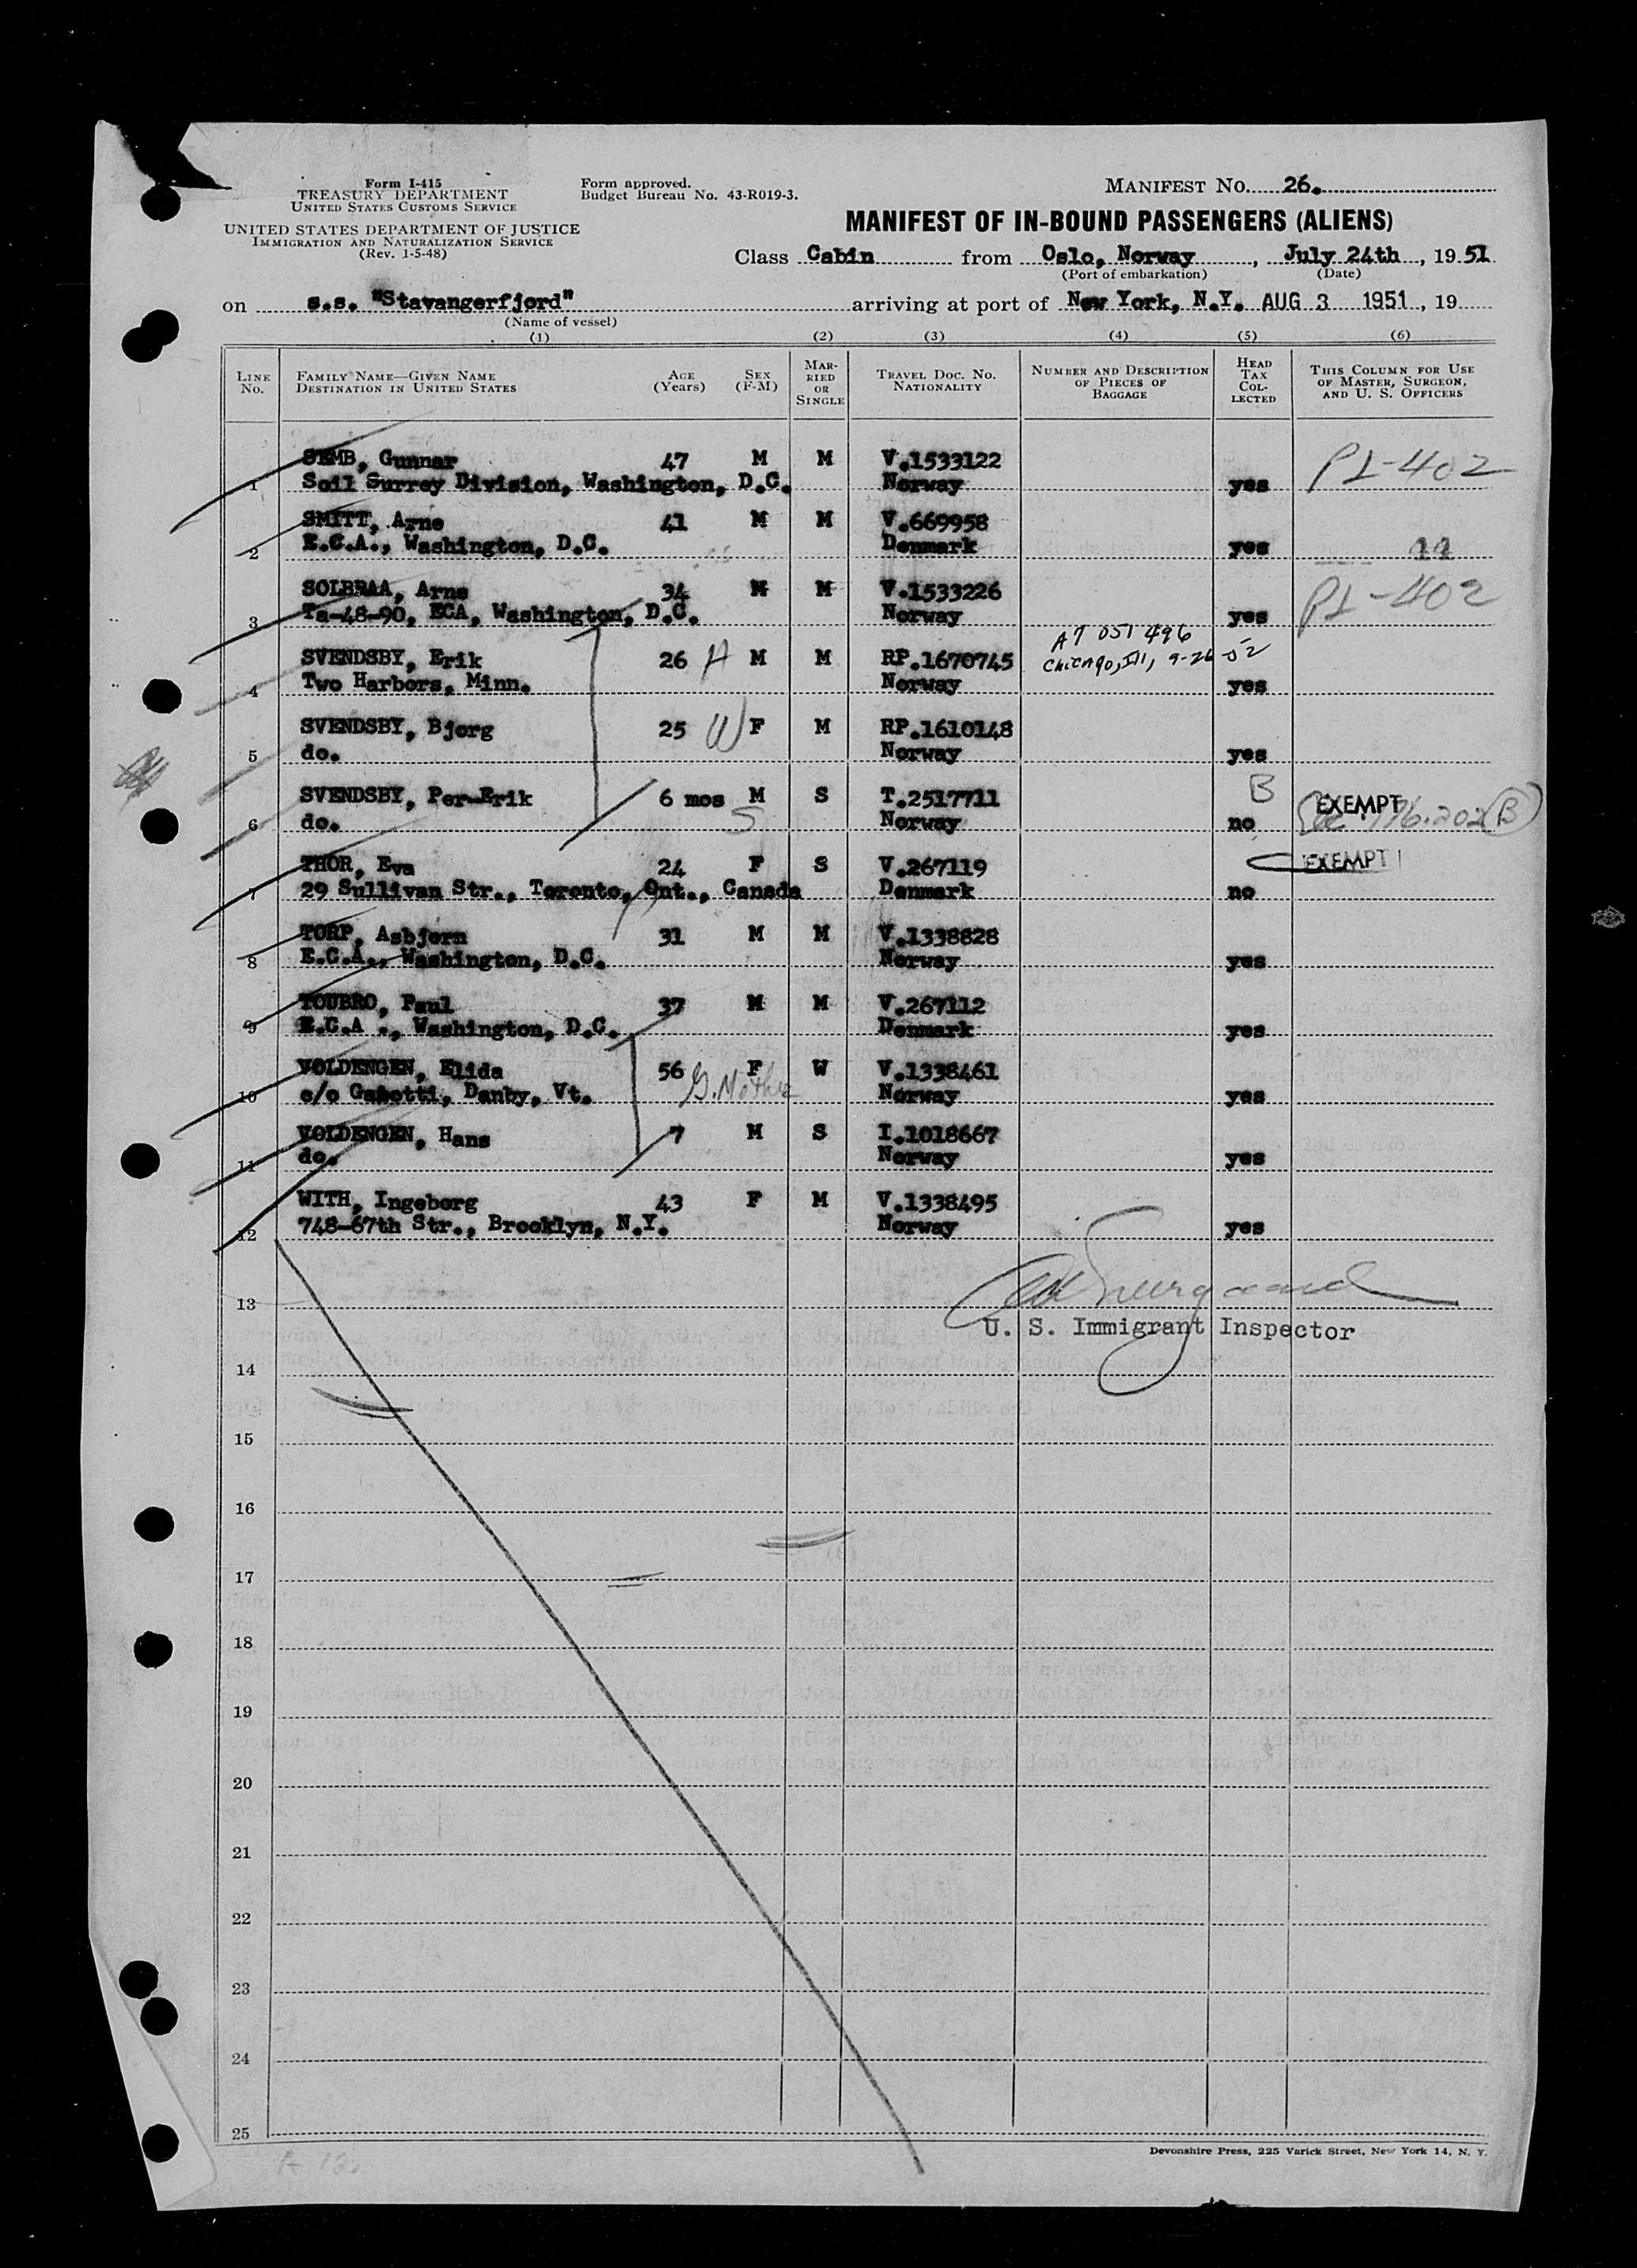 Form I-415
TREASURY DEPARTMENT
UNITED STATES CUSTOMS SERVICE
UNITED STATES DEPARTMENT OF JUSTICE
IMMIGRATION AND NATURALIZATION SERVICE
(Rev. 1-5-48)
Form approved.
Budget Bureau No. 43-R019-3.
MANIFEST NO. 26.
MANIFEST OF IN-BOUND PASSENGERS (ALIENS)
Class Cabin from Oslo, Norway, July 24th, 1951
(Port of embarkation) (Date)
on s.s. "Stavangerfjord" arriving at port of New York, N.Y. AUG 3 1951, 19
(Name of vessel)
(1) (2) (3) (4) (5) (6)
LINE NO. FAMILY NAME—GIVEN NAME DESTINATION IN UNITED STATES AGE (Years) SEX (F-M) MARRIED OR SINGLE TRAVEL DOC. NO. NATIONALITY NUMBER AND DESCRIPTION OF PIECES OF BAGGAGE HEAD TAX COLLECTED THIS COLUMN FOR USE OF MASTER, SURGEON, AND U. S. OFFICERS
SEMB, Gunnar 47 M M V.1533122 PL-402
1 Soil Surrey Division, Washington, D.C. Norway yes
SMITT, Arne 41 M M V.669958
2 E.C.A., Washington, D.C. Denmark yes 11
SOLBRAA, Arne 34 M M V.1533226 PL-402
3 Ta-48-90, ECA, Washington, D.C. Norway yes
A7 051 496
SVENDSBY, Erik 26 H M M RP.1670745 Chicago, Ill, 9-26-52
4 Two Harbors, Minn. Norway yes
SVENDSBY, Bjorg 25 W F M RP.1610148
5 do. Norway yes
SVENDSBY, Per-Erik 6 mos M S T.2517711 B EXEMPT
6 do. S Norway no 176.202(B)
THOR, Eva 24 F S V.267119 EXEMPT
7 29 Sullivan Str., Toronto, Ont., Canada Denmark no
TORP, Asbjorn 31 M M V.1338828
8 E.C.A., Washington, D.C. Norway yes
TOUBRO, Paul 37 M M V.267112
9 E.C.A ., Washington, D.C. Denmark yes
VOLDENGEN, Elida 56 G. Mother F W V.1338461
10 c/o Gabotti, Danby, Vt. Norway yes
VOLDENGEN, Hans 7 M S I.1018667
11 do. Norway yes
WITH, Ingeborg 43 F M V.1338495
12 748-67th Str., Brooklyn, N.Y. Norway yes
13
U. S. Immigrant Inspector
14
15
16
17
18
19
20
21
22
23
24
25
Devonshire Press, 225 Varick Street, New York 14, N. Y.